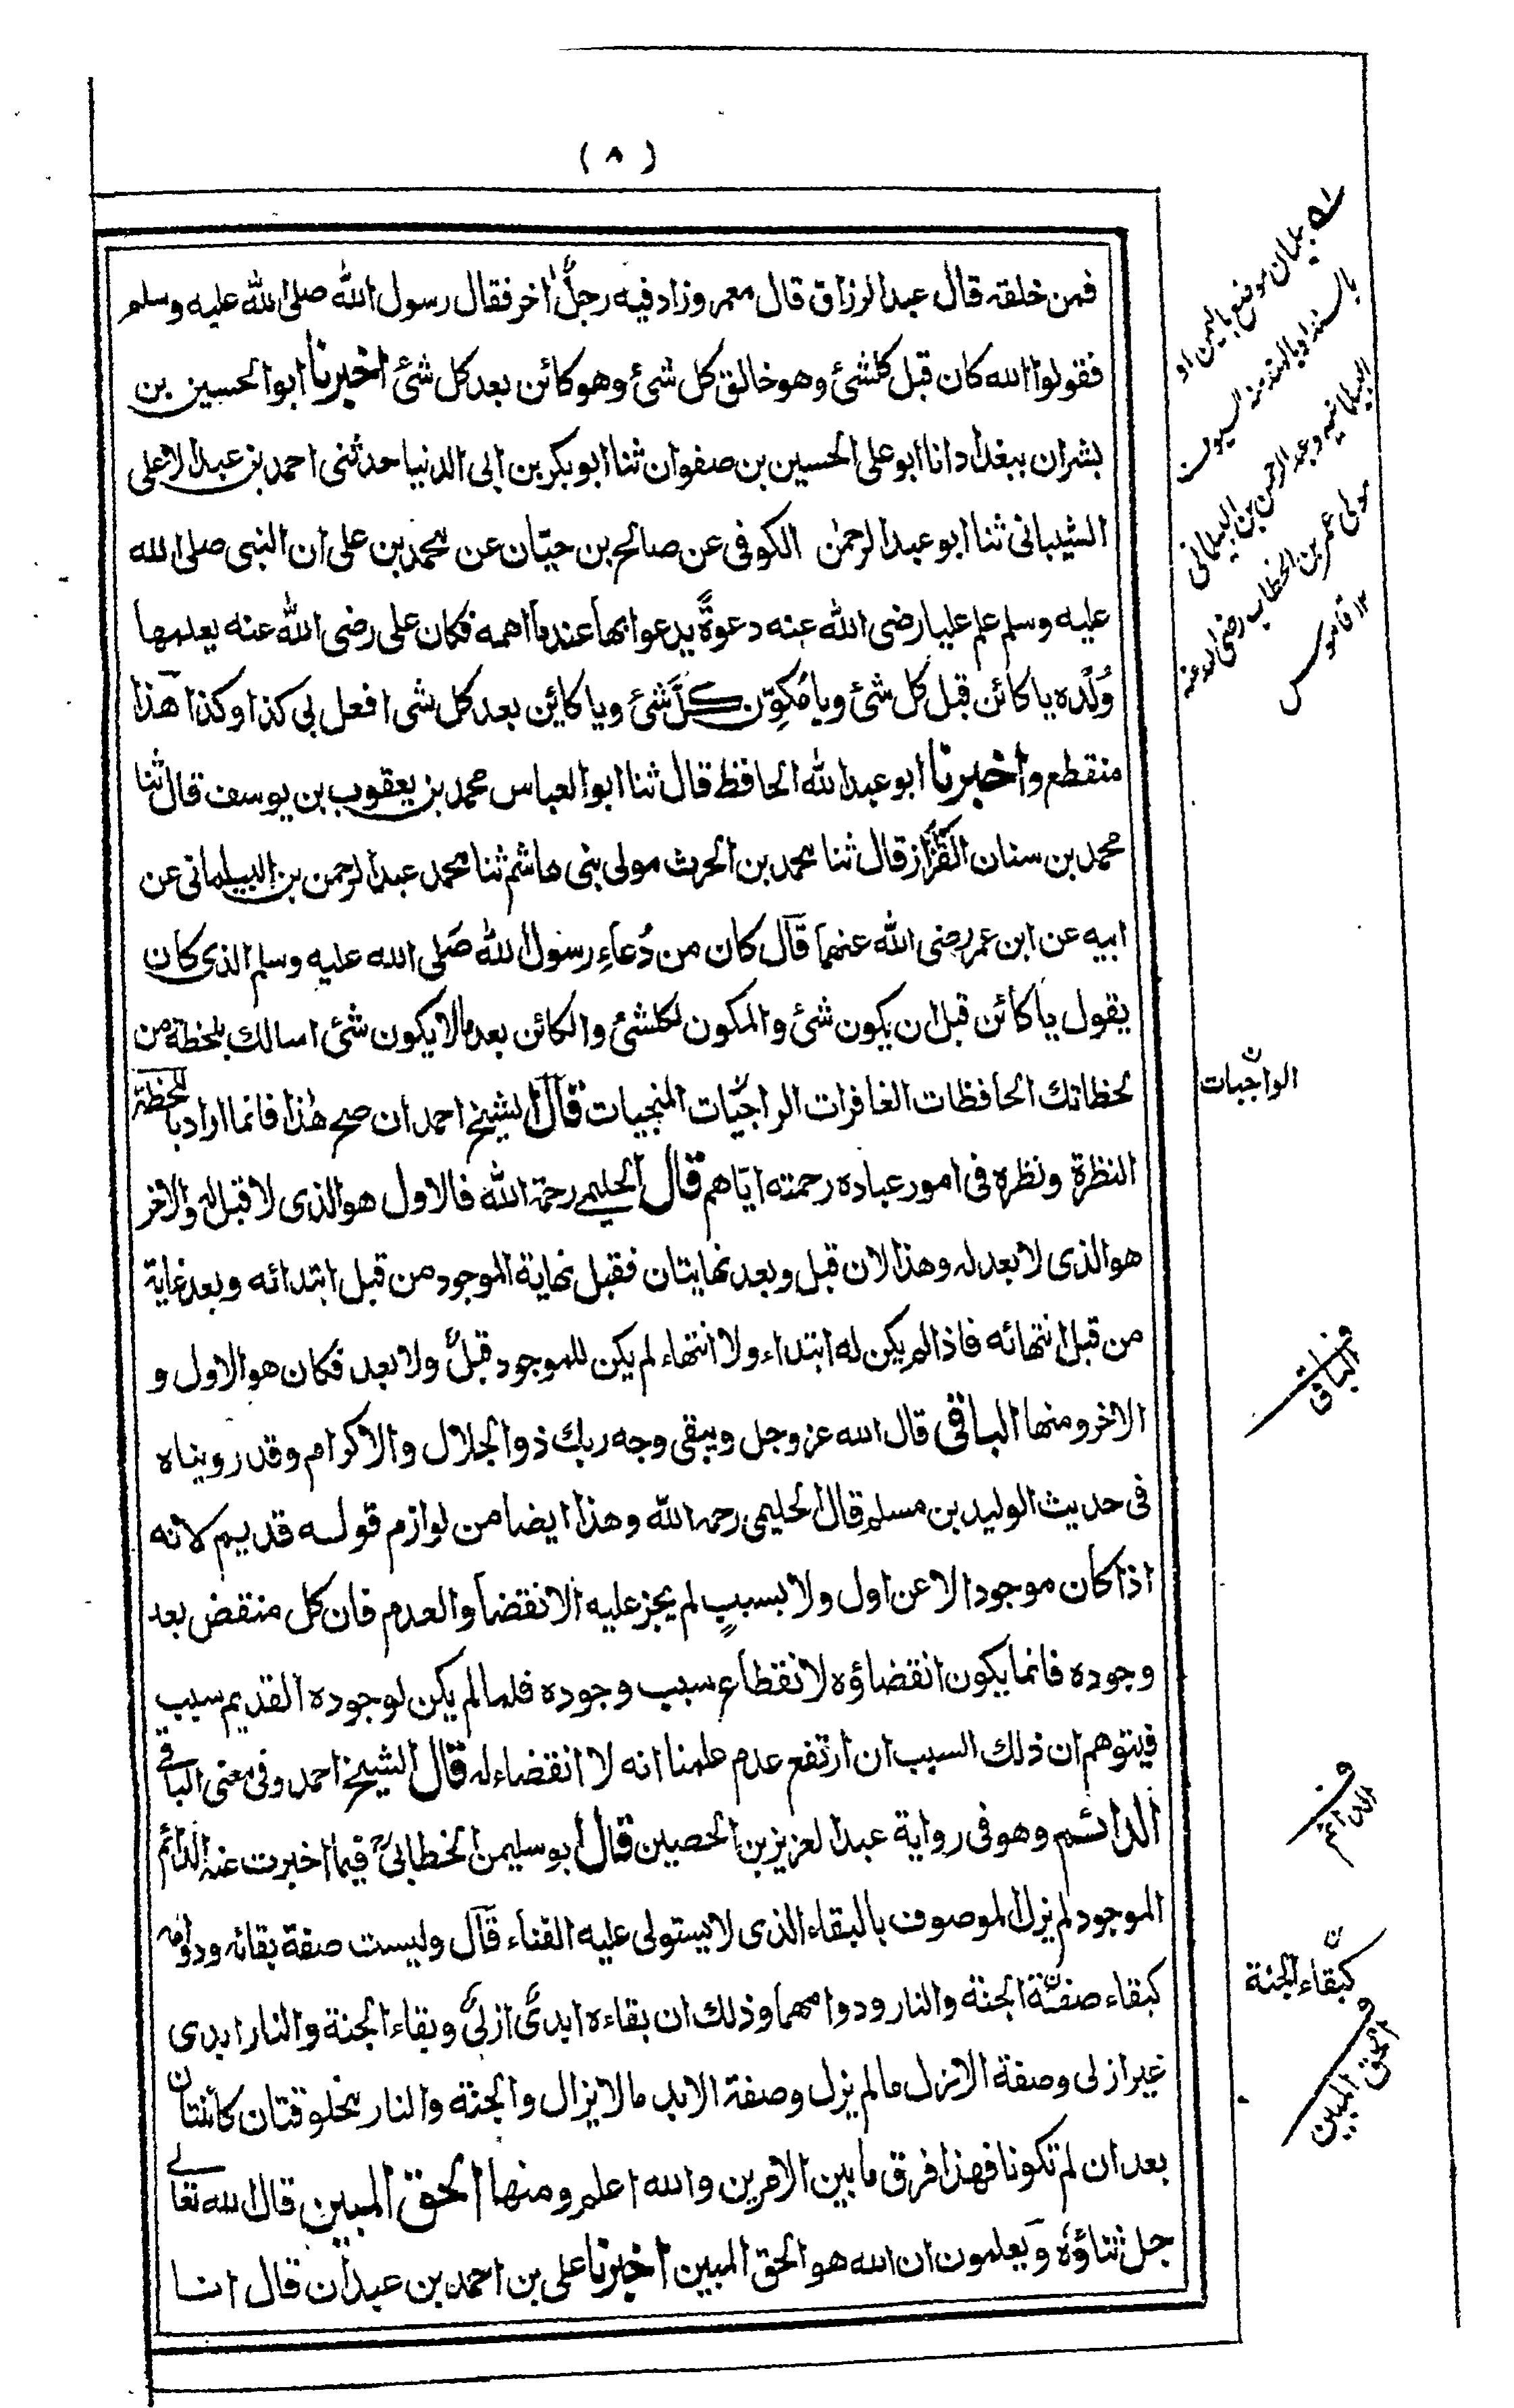 ( ٨ )
فمن خلقه قال عبد الرزاق قال معمر وزاد فيه رجل اخر فقال رسول الله صلى الله عليه وسلم
فقولوا الله كان قبل كلشئ وهو خالق كل شئ وهو كائن بعد كل شئ اخبرنا ابو الحسين بن
بشران ببغداد انا ابو على الحسين بن صفوان ثنا ابو بكر بن ابى الدنيا حدثنى احمد بن عبد الاعلى
الشيبانى ثنا ابو عبد الرحمن الكوفى عن صالح بن حيّان عن محمد بن على ان النبى صلى الله
عليه وسلم علم عليا رضى الله عنه دعوةً يدعوا بها عندما اهمه فكان على رضى الله عنه يعلمها
وُلْده يا كائن قبل كل شئ ويا مُكوِّن كلَّ شئ ويا كاين بعد كل شى افعل بى كذا وكذا هذا
منقطع واخبرنا ابو عبد الله الحافظ قال ثنا ابو العباس محمد بن يعقوب بن يوسف قال ثنا
محمد بن سنان القَزَّاز قال ثنا محمد بن الحرث مولى بنى هاشم ثنا محمد عبد الرحمن بن البيلمانى عن
ابيه عن ابن عمر رضى الله عنهما قال كان من دُعاءِ رسول الله صَلى الله عليه وسلم الذى كان
يقول يا كائن قبل ان يكون شئ والمكون لكلشئ والكائن بعد مالا يكون شئ اسالك بلحظة من
لحظاتك الحافظات الغافرات الراجيات المنجيات قال الشيخ احمد ان صح هذا فانما اراد باللحظة
النظرة ونظره فى امور عباده رحمته ايّاهم قال الحليمى رحمة الله فالاول هو الذى لا قبل له والاخر
هو الذى لا بعد له وهذا لان قبل وبعد نهايتان فقبل نهاية الموجود من قبل ابتدائه وبعد غاية
من قبل انتهائه فاذا لم يكن له ابتداء ولا انتهاء لم يكن للموجود قبلٌ ولا بعد فكان هو الاول و
الاخر ومنها الباقى قال الله عز وجل ويبقى وجه ربك ذو الجلال والاكرام وقد رويناه
فى حديث الوليد بن مسلم قال الحليمى رحمه الله وهذا ايضا من لوازم قوله قديم لانه
اذا كان موجودا لا عن اول ولا بسببٍ لم يجز عليه الانقضا والعدم فان كل منقض بعد
وجوده فانما يكون انقضاؤه لانقطاع سبب وجوده فلما لم يكن لوجوده القديم سبب
فيتوهم ان ذلك السبب ان ارتفع عدم علمنا انه لا انقضاء له قال الشيخ احمد وفى معنى الباقى
الدائم وهو فى رواية عبد العزيز بن الحصين قال ابو سليمن الخطابى فيما اخبرت عنه الدائم
الموجود لم يزل الموصوف بالبقاء الذى لا يستولى عليه الفناء قال وليست صفة بقائه ودوامه
كبقاء صفة الجنة والنار ودوامهما وذلك ان بقاءه ابدىٌّ ازلىٌّ وبقاء الجنة والنار ابدى
غير ازلى وصفة الازل مالم يزل وصفة الابد مالا يزال والجنة والنار مخلوقتان كائنتان
بعد ان لم تكونا فهذا فرق ما بين الامرين والله اعلم ومنها الحق المبين قال الله تعالى
جل ثناؤه ويعلمون ان الله هو الحق المبين اخبرنا على بن احمد بن عبدان قال انا
بيلمان موضع باليمن او
بالسند او بالهند منه السيوف
البيلمانية وعبد الرحمن بن البيلمانى
مولى عمر بن الخطاب رضى الله عنه
١٢ قاموس
الواجبات
الباقى
الدائم
كبقاء الجنة
الحق المبين